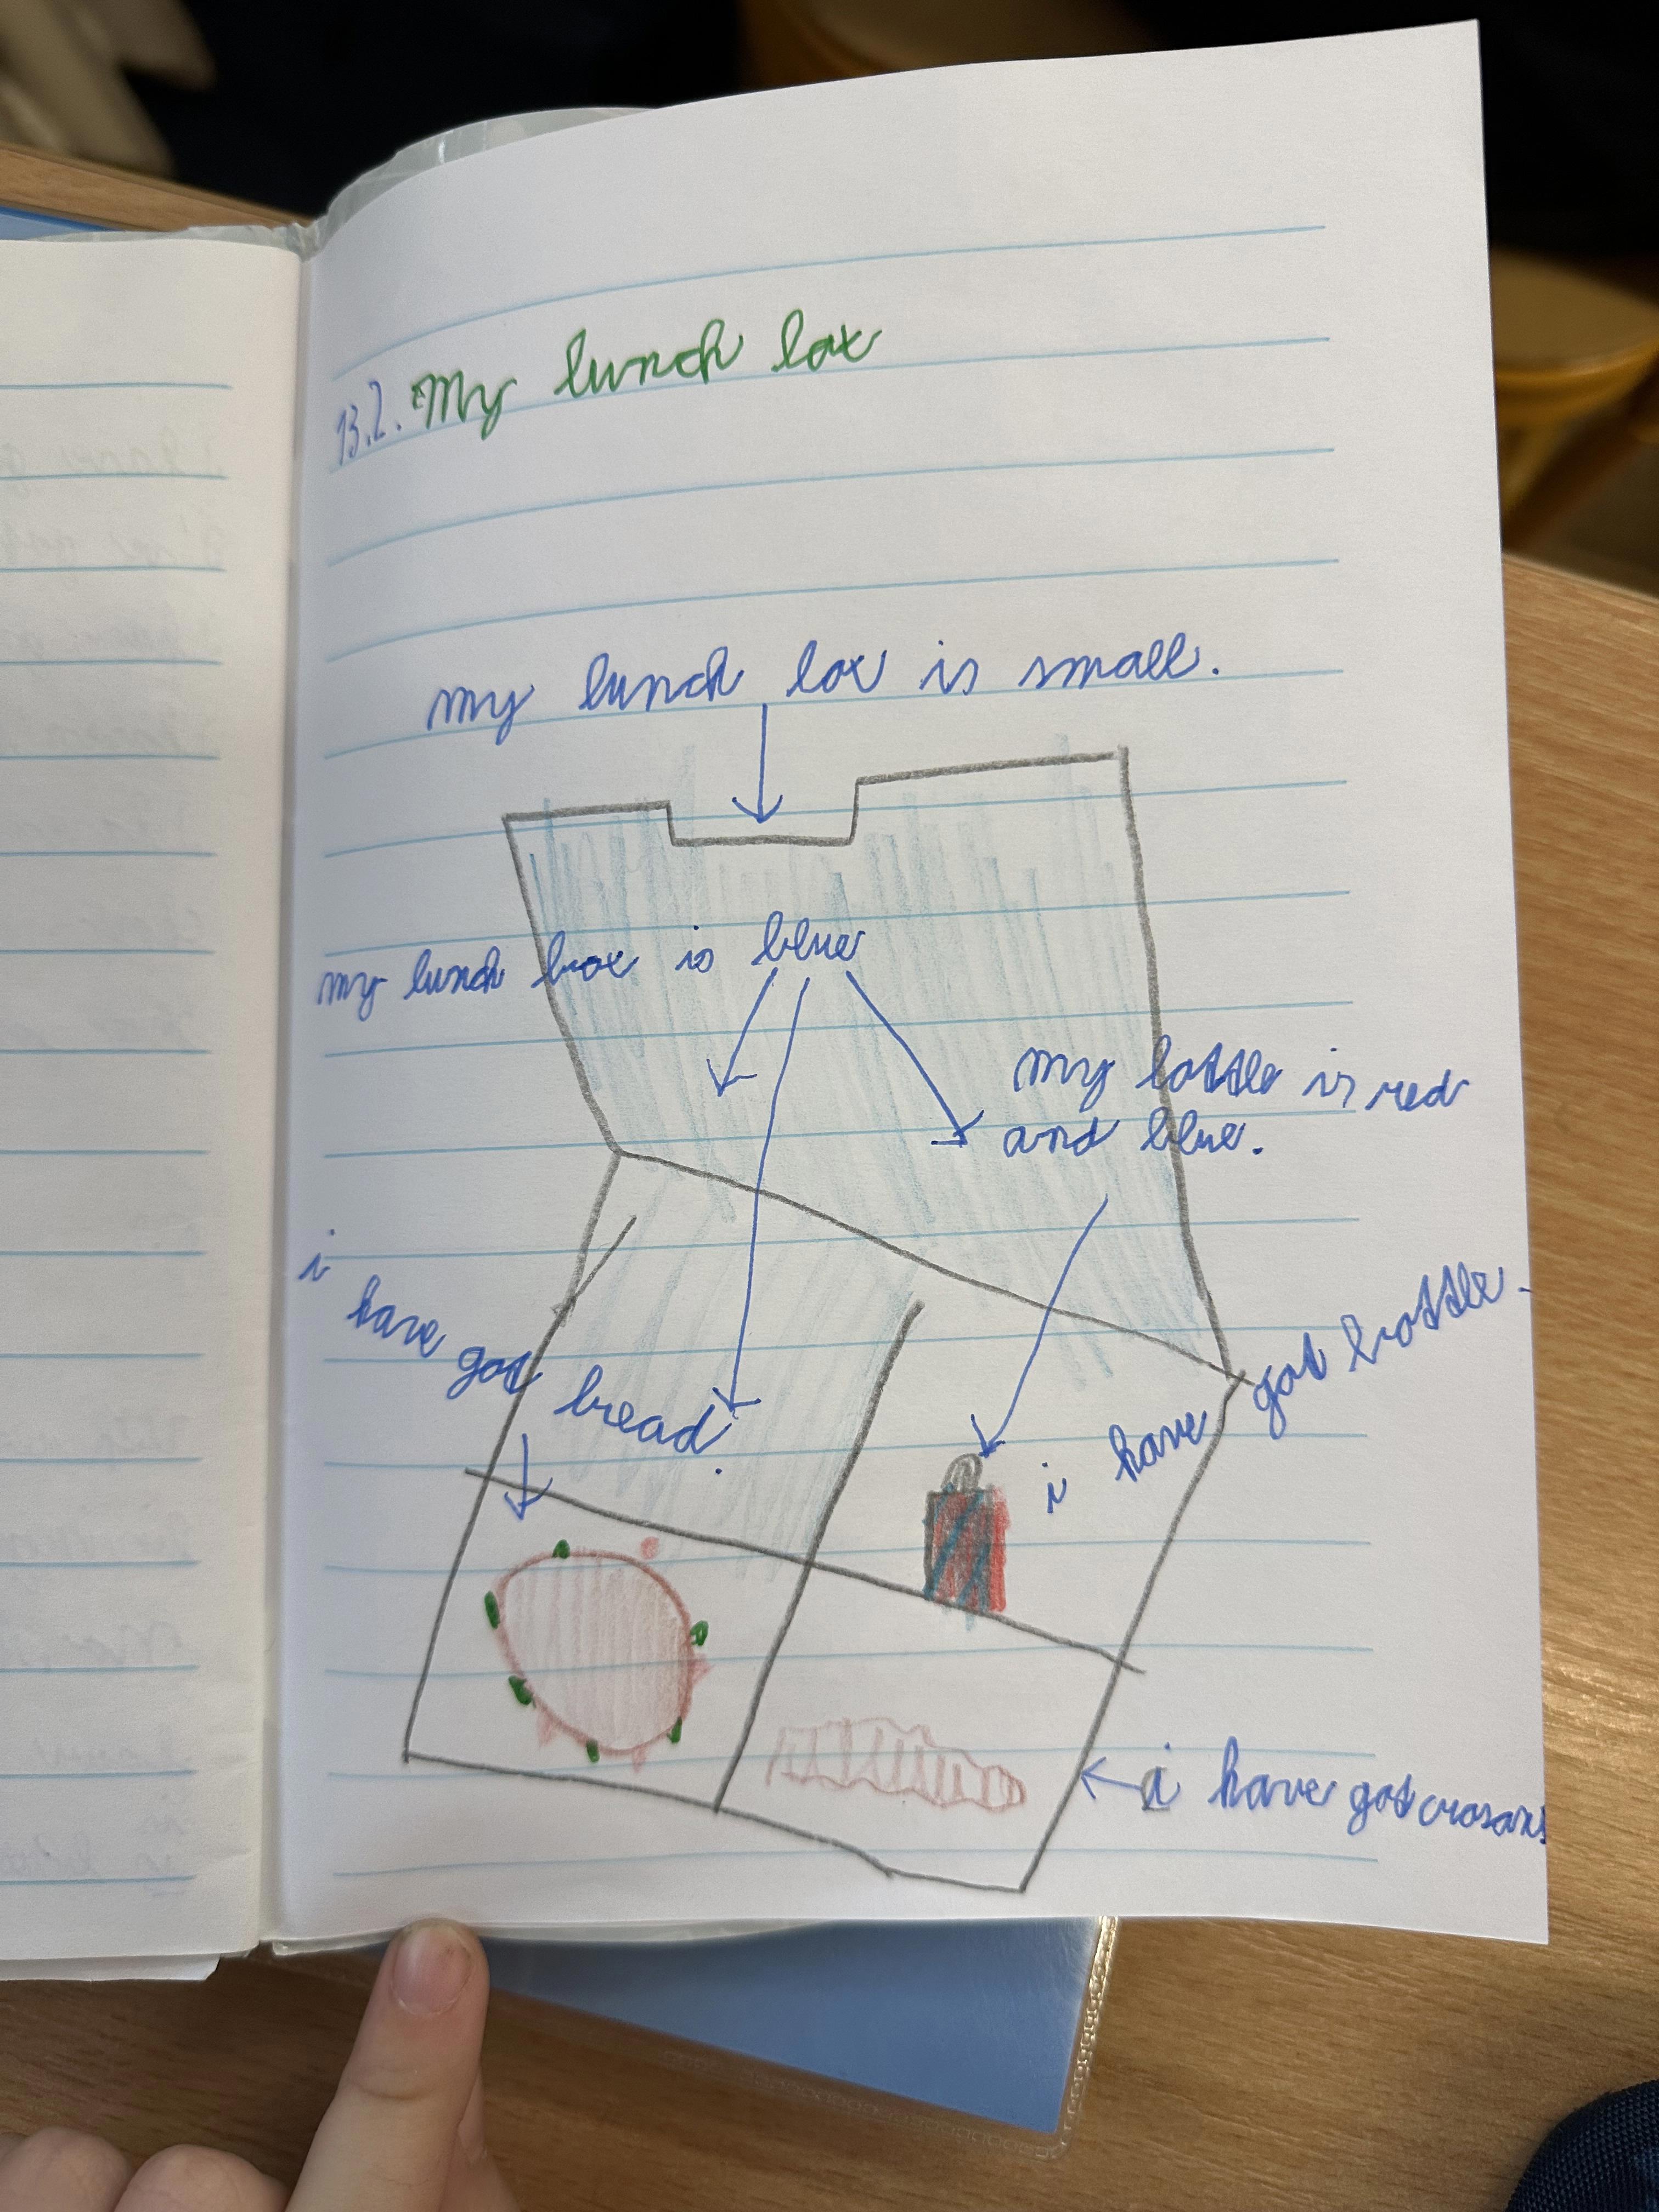 13.2. My lunch box
my lunch box is small.
my lunch box is blue
my bottle is red
and blue.
i have got bread.
i have got bottle.
i have got crosans